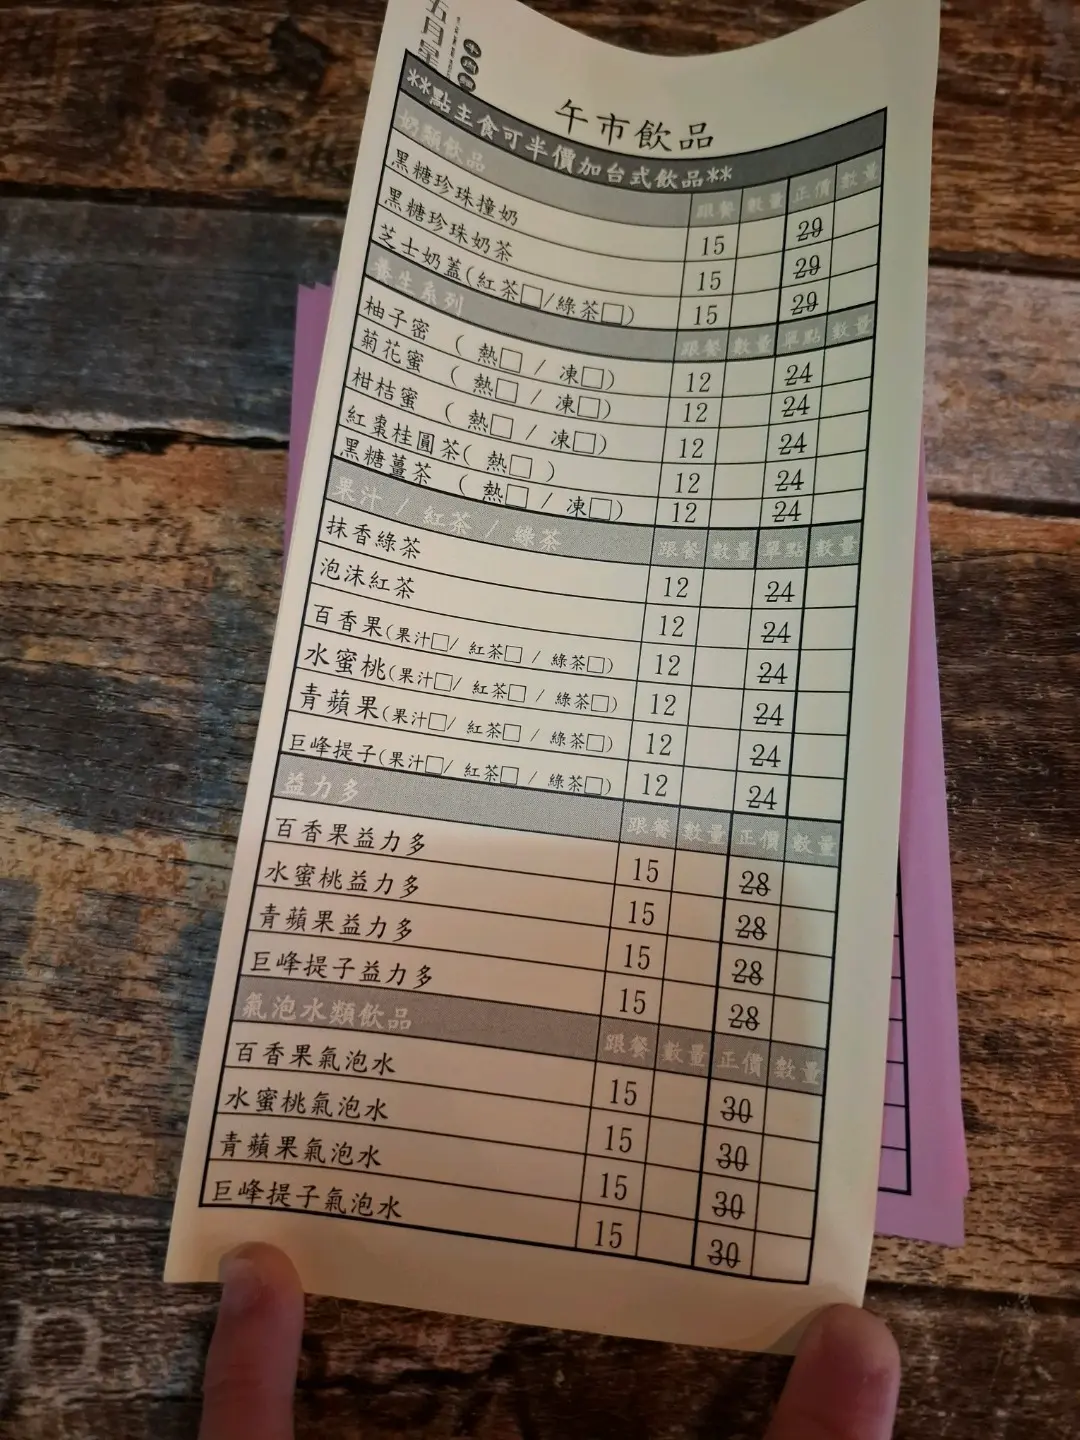 五月
午市飲品
**點主食可半價加台式飲品**
奶類飲品 跟餐 數量 正價 數量
黑糖珍珠撞奶 15 29
黑糖珍珠奶茶 15 29
芝士奶蓋(紅茶□/綠茶□) 15 29
養生系列 跟餐 數量 單點 數量
柚子密 ( 熱□ / 凍□) 12 24
菊花蜜 ( 熱□ / 凍□) 12 24
柑桔蜜 ( 熱□ / 凍□) 12 24
紅棗桂圓茶( 熱□ ) 12 24
黑糖薑茶 ( 熱□ / 凍□) 12 24
果汁 / 紅茶 / 綠茶 跟餐 數量 單點 數量
抹香綠茶 12 24
泡沫紅茶 12 24
百香果(果汁□/ 紅茶□ / 綠茶□) 12 24
水蜜桃(果汁□/ 紅茶□ / 綠茶□) 12 24
青蘋果(果汁□/ 紅茶□ / 綠茶□) 12 24
巨峰提子(果汁□/ 紅茶□ / 綠茶□) 12 24
益力多 跟餐 數量 正價 數量
百香果益力多 15 28
水蜜桃益力多 15 28
青蘋果益力多 15 28
巨峰提子益力多 15 28
氣泡水類飲品 跟餐 數量 正價 數量
百香果氣泡水 15 30
水蜜桃氣泡水 15 30
青蘋果氣泡水 15 30
巨峰提子氣泡水 15 30